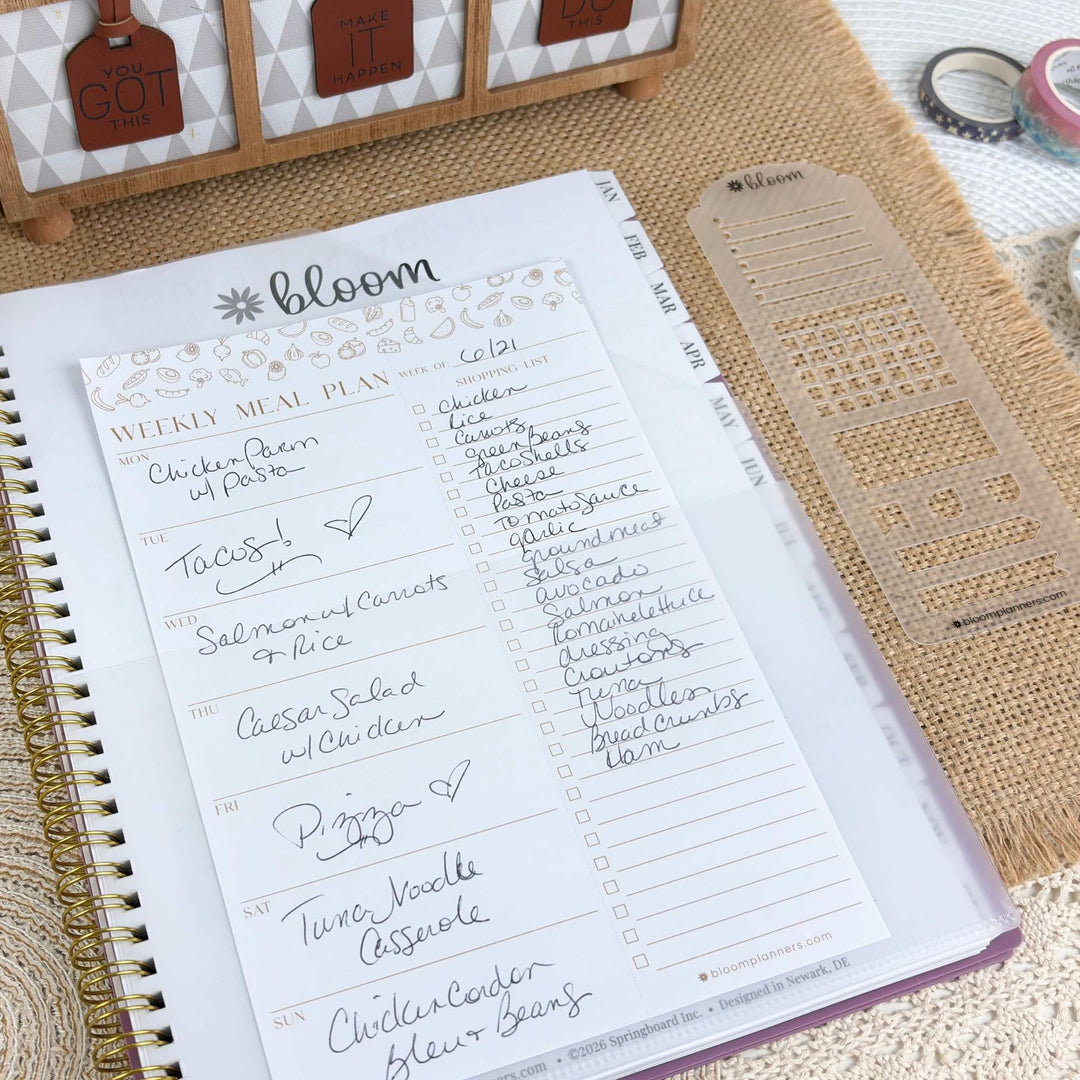 YOU
GOT
THIS
MAKE
IT
HAPPEN
DO
THIS
bloom
JAN
FEB
MAR
APR
MAY
JUN
bloom
WEEKLY MEAL PLAN
MON
Chicken Parm
w/ Pasta
TUE
Tacos!
WED
Salmon w/ Carrots
& Rice
THU
Caesar Salad
w/ Chicken
FRI
Pizza
SAT
Tuna Noodle
Casserole
SUN
Chicken Cordon
Bleu & Beans
WEEK OF: 6/21
SHOPPING LIST
Chicken
Rice
Carrots
green Beans
Taco Shells
Cheese
Pasta
Tomato Sauce
garlic
ground meat
Salsa
avocado
Salmon
Romaine lettuce
dressing
Croutons
Tuna
Noodles
Bread Crumbs
Ham
bloomplanners.com
ners.com • ©2026 Springboard Inc. • Designed in Newark, DE
bloomplanners.com